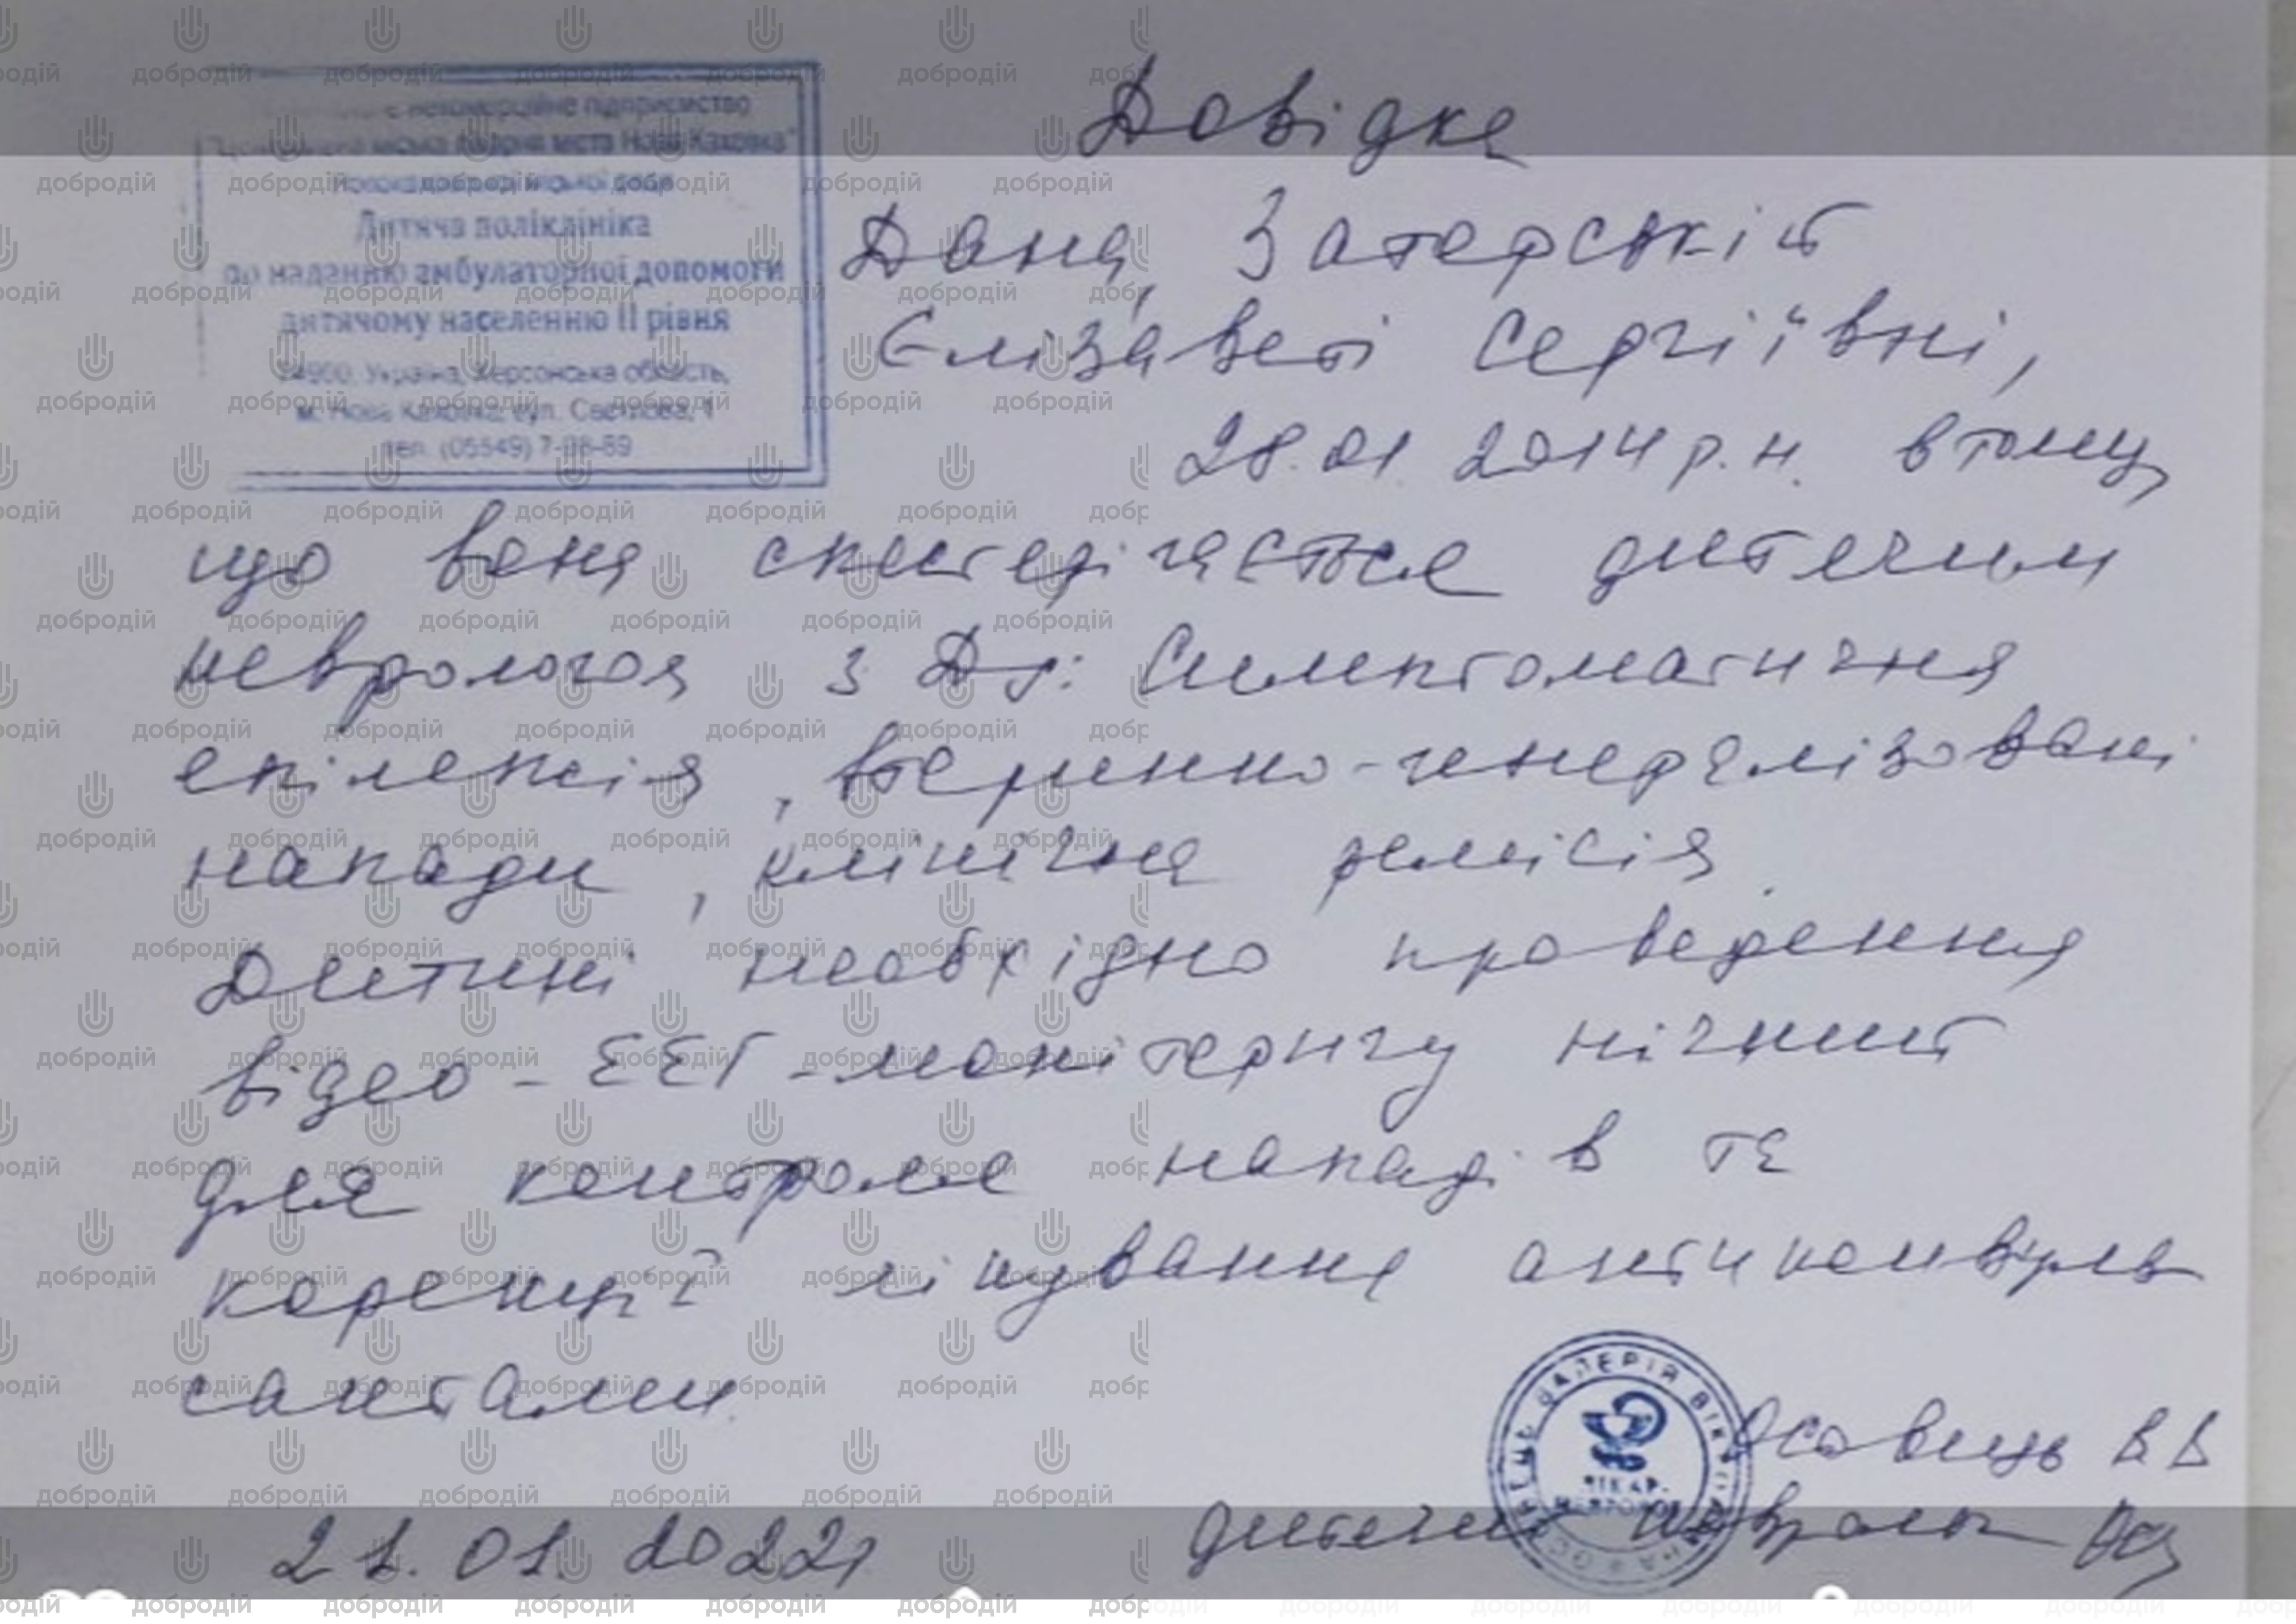 Довідка
некомерційне підприємство
міська лікарня міста Нова Каховка"
Дитяча поліклініка
по наданню амбулаторної допомоги
дитячому населенню ІІ рівня
Україна, Херсонська область,
м. Нова Каховка, вул.
тел. (05549)
Дана Затерській
Єлізаветі Сергіївні,
28.01.2014 р.н. в тому,
що вона спостерігається дитячим
неврологом з Дз: Симптоматична
епілепсія, вторинно-генералізовані
напади, клінічна ремісія.
Дитині необхідно проведення
відео-ЕЕГ-моніторингу нічний
для контролю нападів та
корекції лікування антиконвуль
сантами.
ОСОВЕЦЬ ВАЛЕРІЯ ВІКТОРІВНА
ЛІКАР-
НЕВРОЛОГ
Осовець В В
21.01.2022р дитячий невролог
добродій